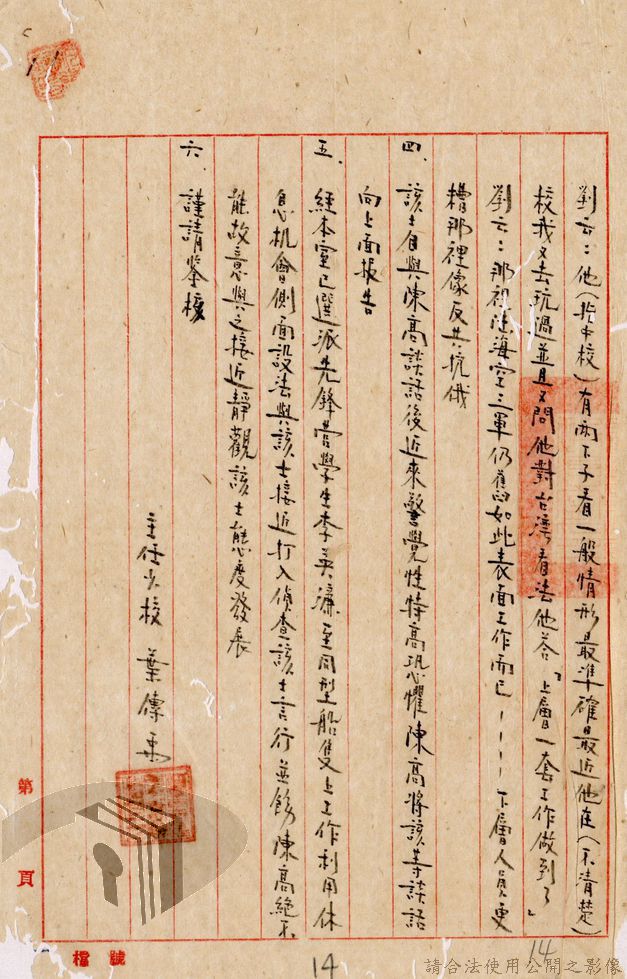 劉云：他（指中校）有兩下子看一般情形最準確最近他在（不清楚）
校我又去玩過並且又問他對台灣看法他答「上層一套工作做到了」
劉云：那裡陸海空三軍仍舊如此表面工作而已－－－－下層人員更
糟那裡像反共抗俄
四、該士自與陳高談話後近來警覺性特高恐懼陳高將該等談話
向上面报告
五、經本室已選派先鋒營學生李英濂至同型船隻上工作利用休
息机會側面設法與該士接近打入偵查該士言行並飭陳高絕不
能故意與之接近靜觀該士態度發展
六、謹請鑒核
主任少校 葉傳
第 頁
檔 號
14
14
請合法使用公開之影像